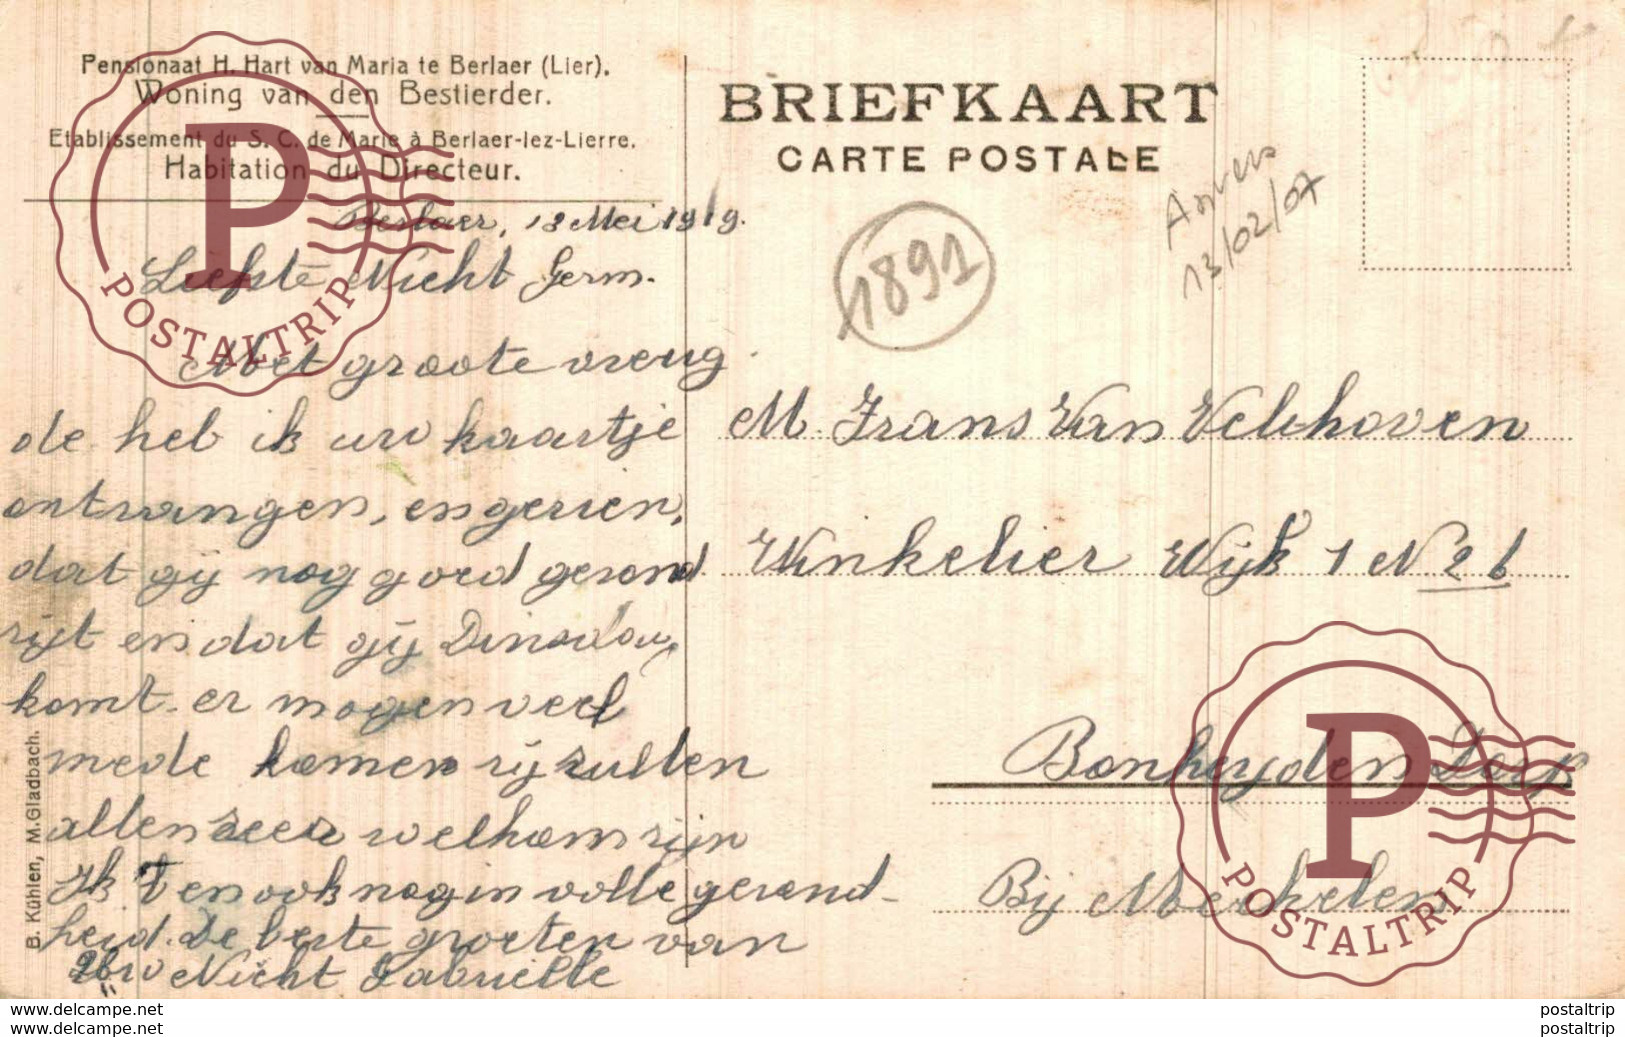 Pensionaat H. Hart van Maria te Berlaer (Lier).
Woning van den Bestierder.
Etablissement du S. C. de Marie à Berlaer-lez-Lierre.
Habitation du Directeur.
BRIEFKAART
CARTE POSTALE
Anvers
13/02/07
1891
Berlaer, 13 Mei 1919.
Liefste Nicht Germ.
Met groote vreug
de heb ik uw kaartje
ontvangen, en gezien,
dat gij nog goed gezond
zijt en dat gij Dinsdag
komt. er mogen veel
mede komen zij zullen
allen zeer welkom zijn
Ik ben ook nog in volle gezond-
heid. De beste groeten van
Uw Nicht Gabrielle
M. Frans Van Velthoven
Winkelier Wijk 1 N 26
Bonheyden Dorp
Bij Mechelen
B. Kühlen, M. Gladbach.
P
POSTALTRIP
P
POSTALTRIP
postaltrip
www.delcampe.net
postaltrip
www.delcampe.net
postaltrip